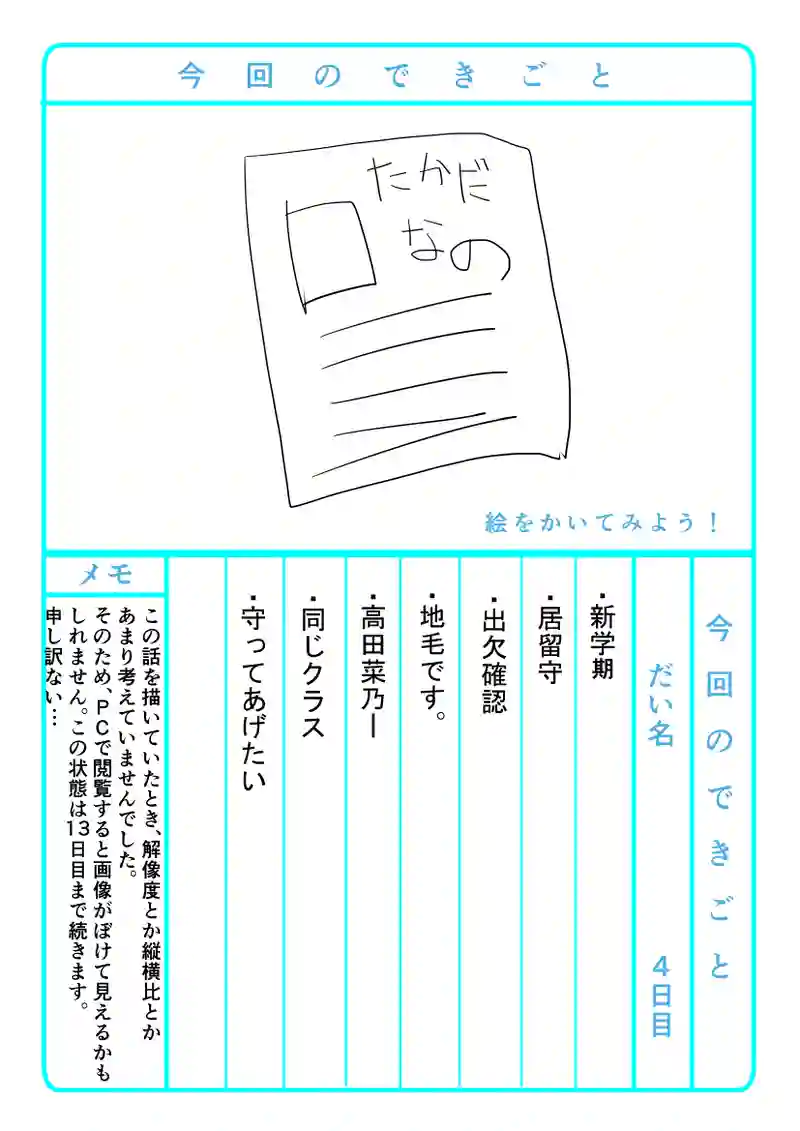 今回のできごと
たかだ
なの
絵をかいてみよう！
今回のできごと
だい名 4日目
・新学期
・居留守
・出欠確認
・地毛です。
・高田菜乃ー
・同じクラス
・守ってあげたい
メモ
この話を描いていたとき、解像度とか縦横比とか
あまり考えていませんでした。
そのため、PCで閲覧すると画像がぼけて見えるかも
しれません。この状態は13日目まで続きます。
申し訳ない…